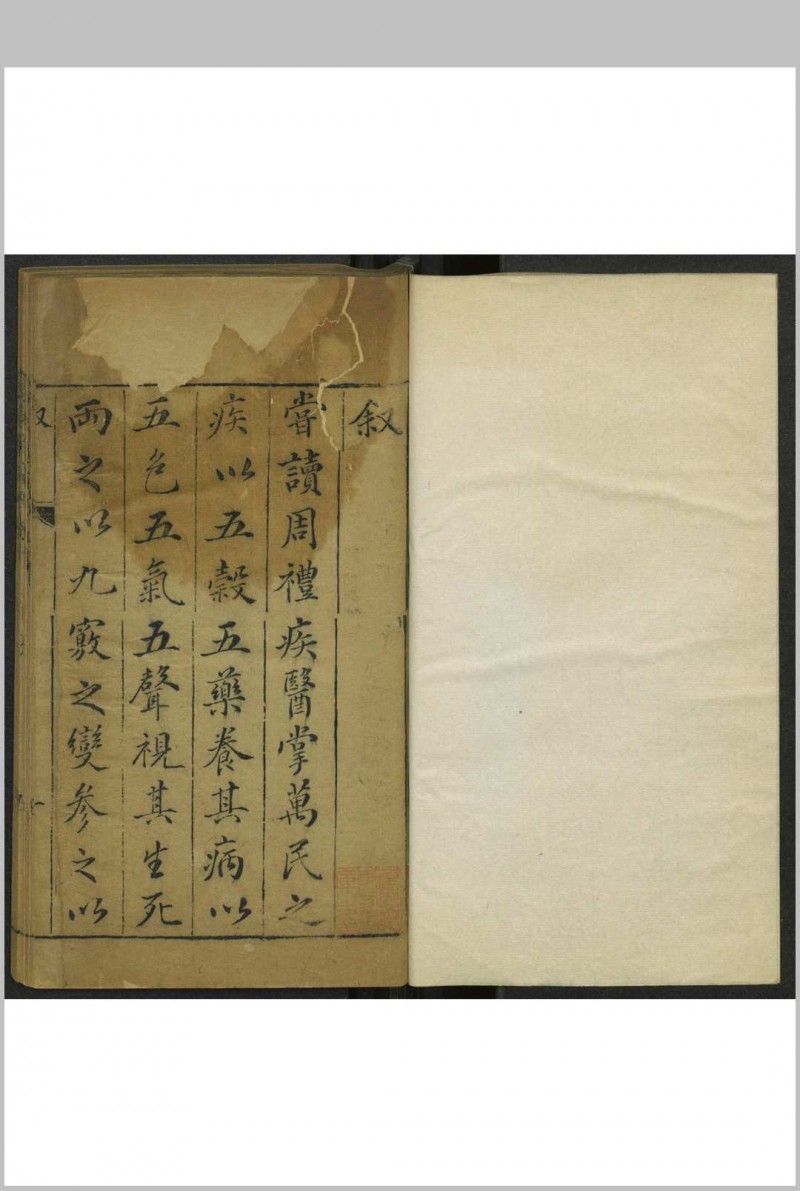 叙
嘗讀周禮疾醫掌萬民之
疾以五穀五藥養其病以
五色五氣五聲視其生死
兩之以九竅之變参之以